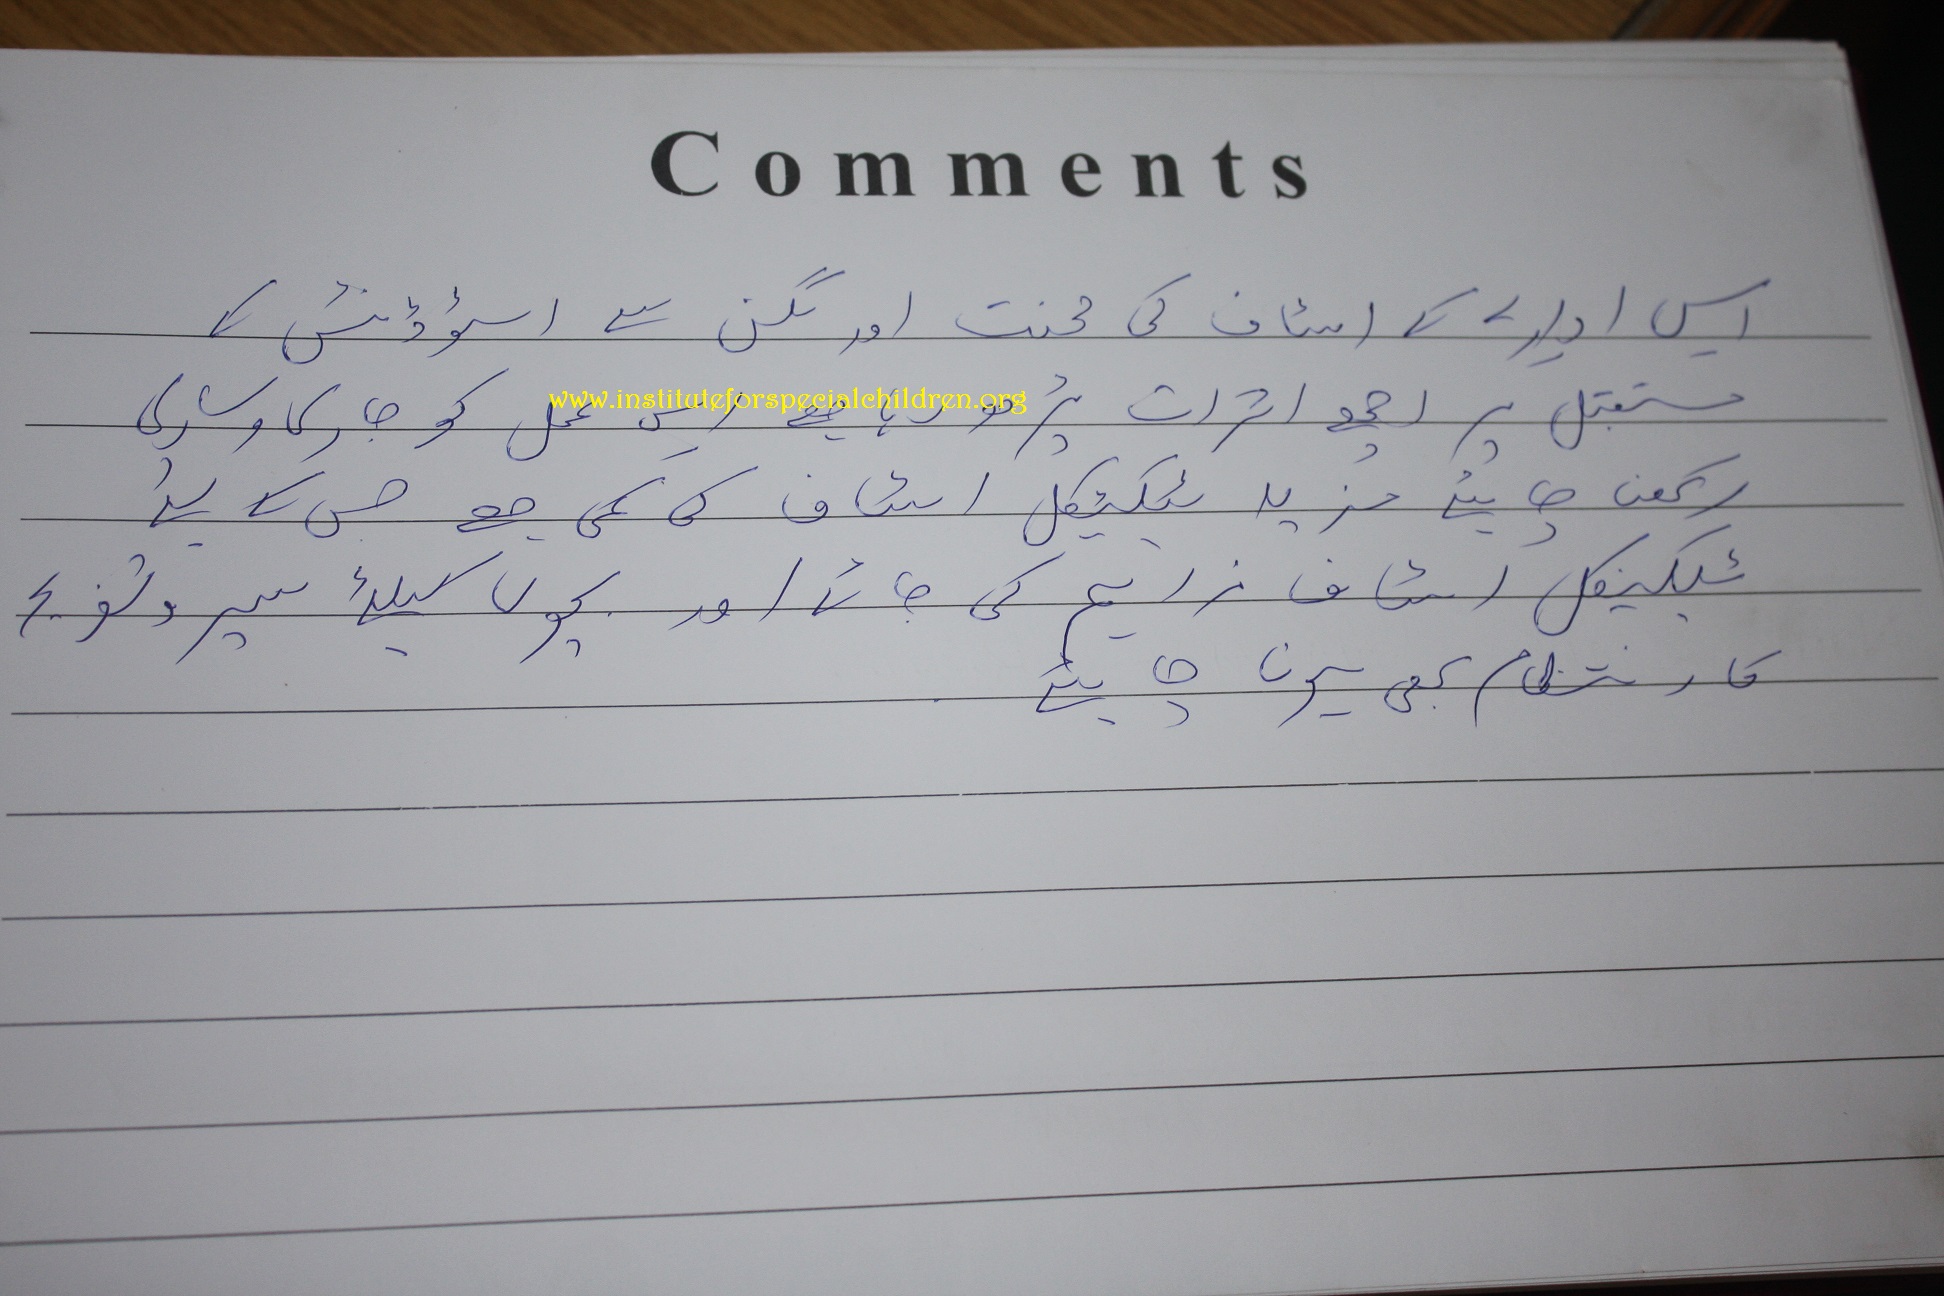 Comments
اس ادارے کے اسٹاف کی محنت اور لگن سے اسٹوڈنٹس کے
مستقبل پر اچھے اثرات پڑ رہا ہے اس عمل کو جاری و ساری
www.instituteforspecialchildren.org
رکھنا چاہیئے مزید ٹیکنیکل اسٹاف کی کمی ہے جس کے لیۓ
ٹیکنیکل اسٹاف فراہم کی جائے اور بچوں کیلئے سیر و تفریح
کا انتظام بھی ہونا چاہیئے